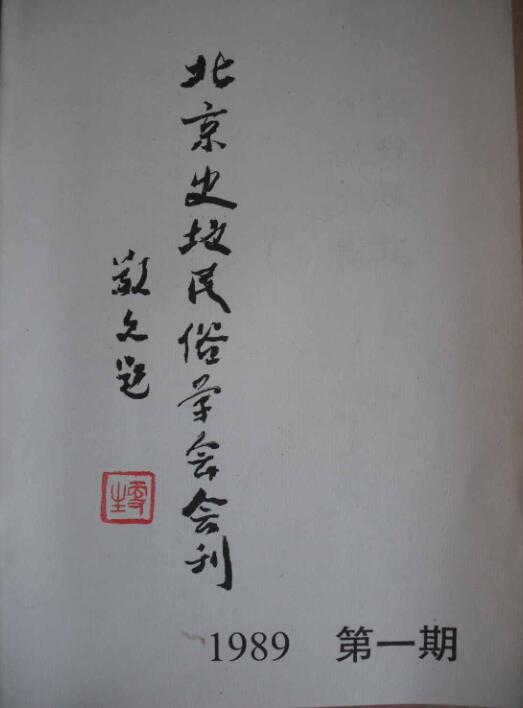 北京史地民俗学会会刊
敬文题
1989 第一期